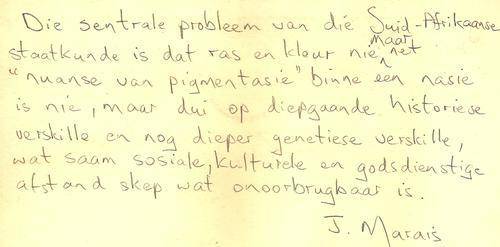 Die sentrale probleem van die Suid-Afrikaanse
staatkunde is dat ras en kleur nie maar net
"nuanse van pigmentasie" binne een nasie
is nie, maar dui op diepgaande historiese
verskille en nog dieper genetiese verskille,
wat saam sosiale, kulturele en godsdienstige
afstand skep wat onoorbrugbaar is.
J. Marais